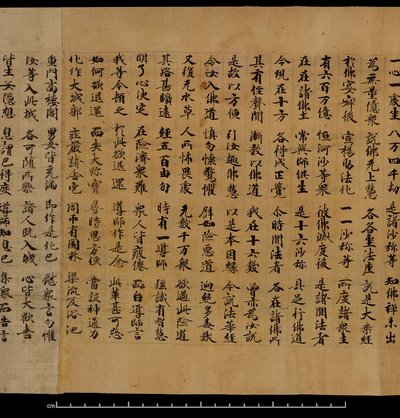 一心一處坐 八万四千劫 是諸沙弥等 知佛禅未出
為無量億衆 說佛无上慧 各各坐法座 說是大乘經
於佛宴寂後 宣揚助法化 一一沙弥等 所度諸衆生
有六百万億 恒河沙等衆 彼佛滅度後 是諸聞法者
在在諸佛土 常與師俱生 是十六沙弥 具足行佛道
今現在十方 各得成正覺 尒時聞法者 各在諸佛所
其有住聲聞 漸教以佛道 我在十六數 曾亦為汝說
是故以方便 引汝趣佛慧 以是本因緣 今說法華經
令汝入佛道 慎勿懷驚懼 譬如險惡道 迥絶多毒獸
又復无水草 人所怖畏處 无數千万衆 欲過此險道
其路甚曠遠 經五百由旬 時有一導師 強識有智慧
明了心決定 在險濟衆難 衆人皆疲倦 而白導師言
我等今頓乏 於此欲退還 導師作是念 此輩甚可愍
如何欲退還 而失大珎寶 尋時思方便 當設神通力
化作大城郭 莊嚴諸舍宅 周帀有園林 渠流及浴池
重門高樓閣 男女皆充滿 即作是化已 慰衆言勿懼
汝等入此城 各可随所樂 諸人既入城 心皆大歡喜
皆生安隱想 自謂已得度 導師知息已 集衆而告言
cm